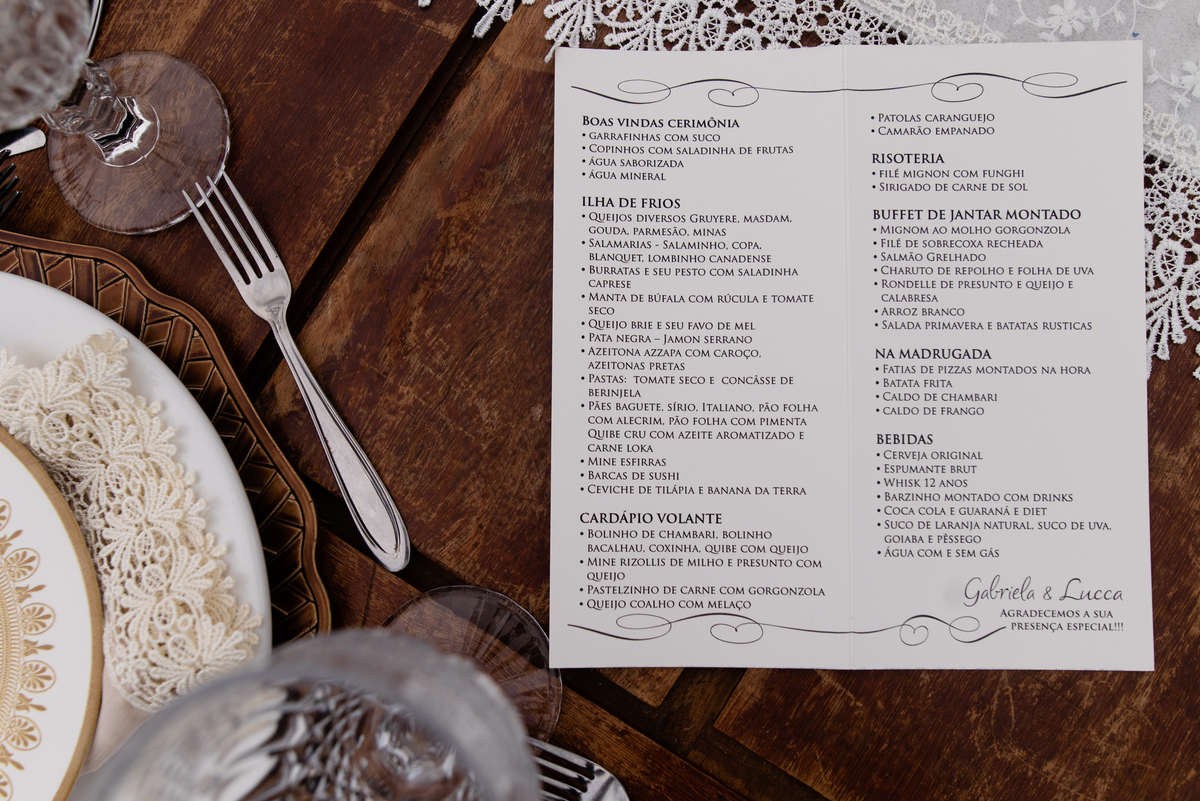 Boas vindas cerimônia
• garrafinhas com suco
• Copinhos com saladinha de frutas
• água saborizada
• água mineral
Ilha de frios
• Queijos diversos Gruyere, masdam,
gouda, parmesão, minas
• Salamarias - Salaminho, copa,
blanquet, lombinho canadense
• Burratas e seu pesto com saladinha
caprese
• Manta de búfala com rúcula e tomate
seco
• Queijo brie e seu favo de mel
• Pata negra – Jamon serrano
• Azeitona azzapa com caroço,
azeitonas pretas
• Pastas: tomate seco e concâsse de
berinjela
• Pães baguete, sírio, Italiano, pão folha
com alecrim, pão folha com pimenta
Quibe cru com azeite aromatizado e
carne loka
• Mine esfirras
• Barcas de sushi
• Ceviche de tilápia e banana da terra
Cardápio volante
• Bolinho de chambari, bolinho
bacalhau, coxinha, quibe com queijo
• Mine rizollis de milho e presunto com
queijo
• Pastelzinho de carne com gorgonzola
• Queijo coalho com melaço
• Patolas caranguejo
• Camarão empanado
Risoteria
• filé mignon com funghi
• Sirigado de carne de sol
Buffet de jantar montado
• Mignom ao molho gorgonzola
• Filé de sobrecoxa recheada
• Salmão Grelhado
• Charuto de repolho e folha de uva
• Rondelle de presunto e queijo e
calabresa
• Arroz branco
• Salada primavera e batatas rusticas
Na madrugada
• Fatias de pizzas montados na hora
• Batata frita
• Caldo de chambari
• caldo de frango
Bebidas
• Cerveja original
• Espumante brut
• Whisk 12 anos
• Barzinho montado com drinks
• Coca cola e guaraná e diet
• Suco de laranja natural, suco de uva,
goiaba e pêssego
• Água com e sem gás
Gabriela & Lucca
Agradecemos a sua
presença especial!!!